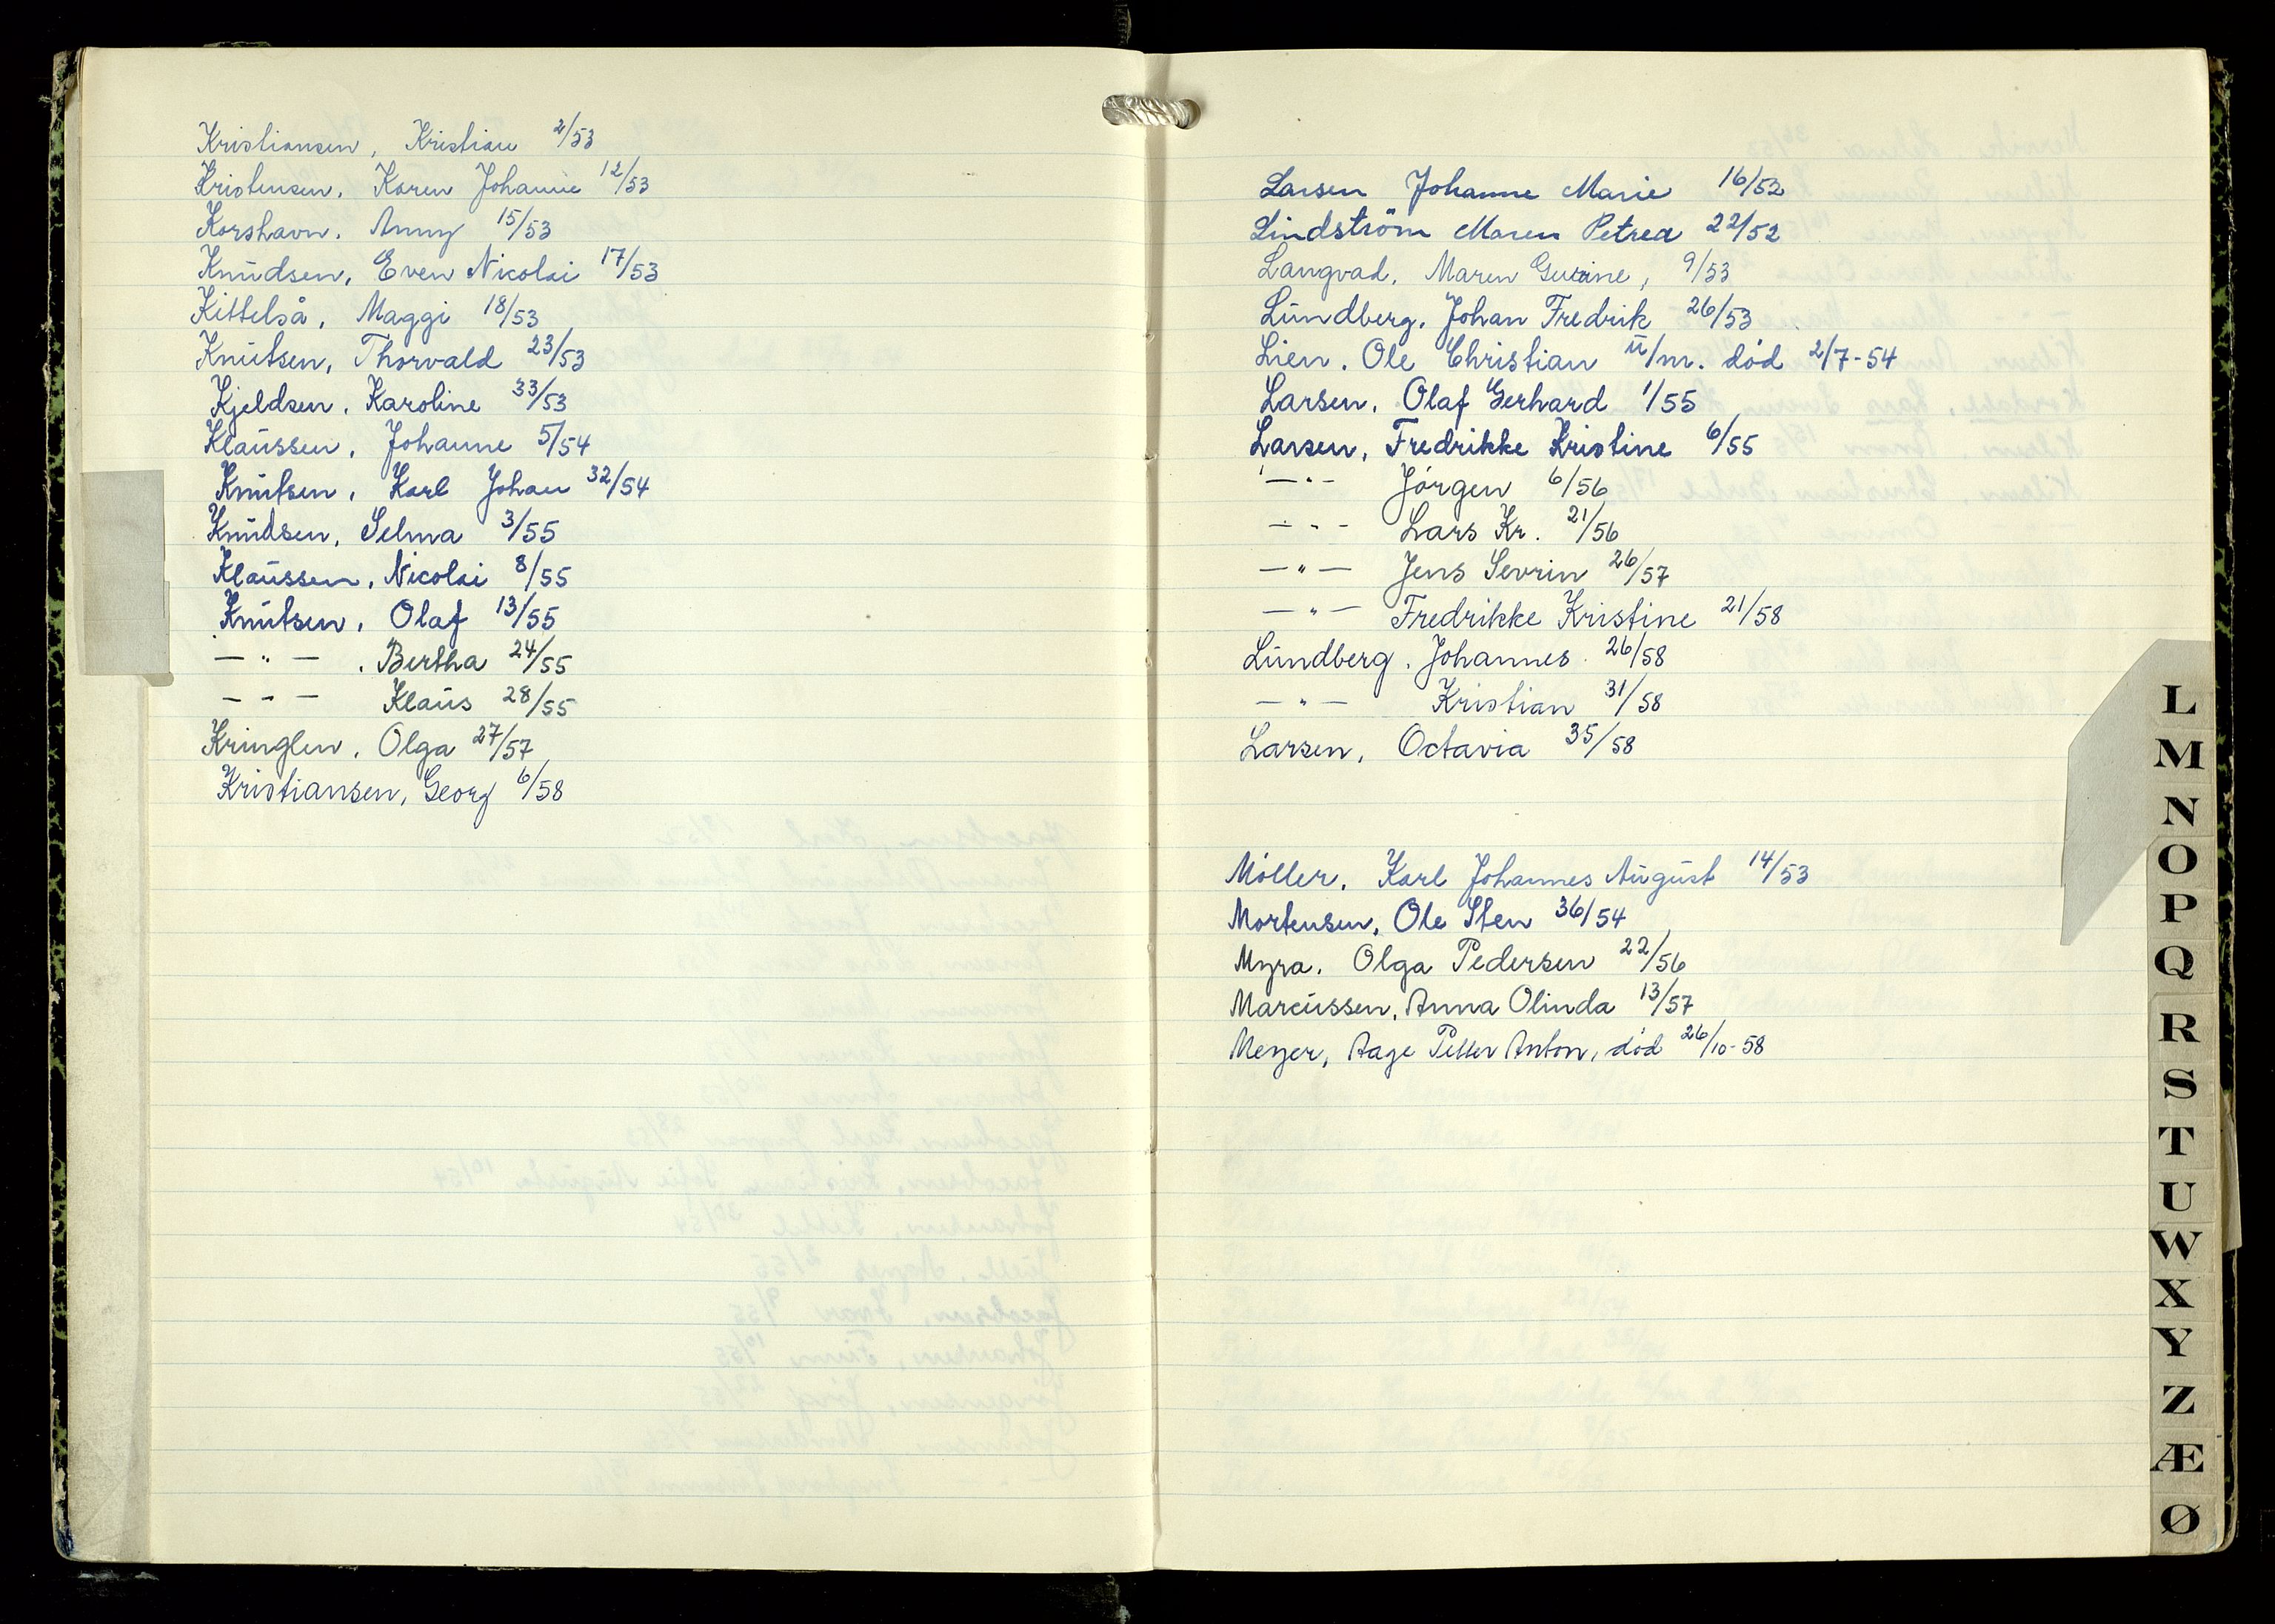 Kristiansen, Kristian 2/53
Kristensen, Karen Johanne 12/53
Korshavn, Anny 15/53
Knudsen, Even Nicolai 17/53
Kittelså, Maggi 18/53
Knutsen, Thorvald 23/53
Kjeldsen, Karoline 33/53
Klaussen, Johanne 5/54
Knutsen, Karl Johan 32/54
Knudsen, Selma 3/55
Klaussen, Nicolai 8/55
Knutsen, Olaf 13/55
— " — , Bertha 24/55
— " — Klaus 28/55
Kringlen, Olga 27/57
Kristiansen, Georg 6/58
Larsen Johanne Marie 16/52
Lindström Maren Petrea 22/52
Langvad, Maren Gurine, 9/53
Lundberg, Johan Fredrik 26/53
Lien, Ole Christian u/m. død 2/7-54
Larsen, Olaf Gerhard 1/55
Larsen, Fredrikke Kristine 6/55
— " — Jørgen 6/56
— " — Lars Kr. 21/56
— " — Jens Sevrin 26/57
— " — Fredrikke Kristine 21/58
Lundberg, Johannes 26/58
— " — Kristian 31/58
Larsen, Octavia 35/58
Møller, Karl Johannes August 14/53
Mortensen, Ole Sten 36/54
Myra, Olga Pedersen 22/56
Marcussen, Anna Olinda 13/57
Meyer, Aage Petter Anton, død 26/10-58
L
M
N
O
P
Q
R
S
T
U
W
X
Y
Z
Æ
Ø